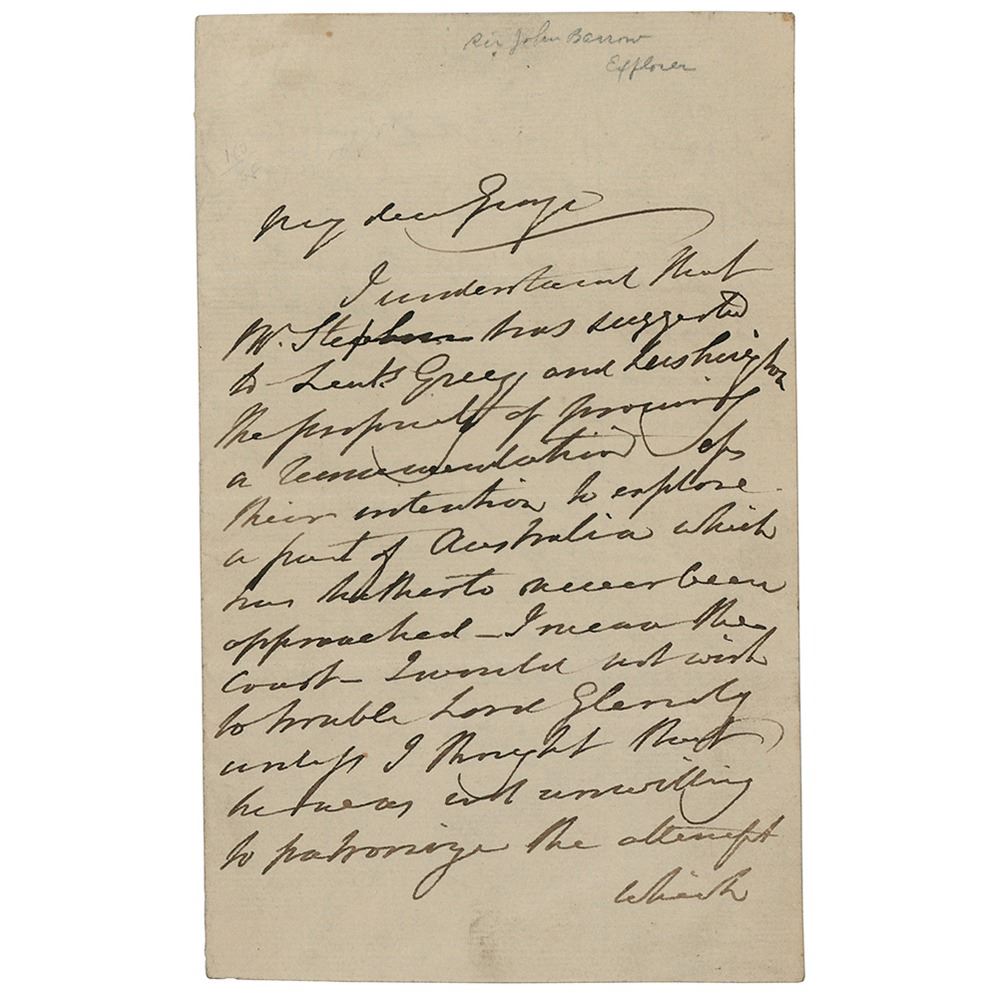 Sir John Barrow
Explorer
My dear George
I understand that
Mr. Stephen has suggested
to Leuts Grey and Lushington
the propriety of procuring
a recommendation of
their intention to explore
a part of Australia which
has hitherto never been
approached – I mean the
coast – I would not wish
to trouble Lord Glenelg
unless I thought that
he was not unwilling
to patronize the attempt
which